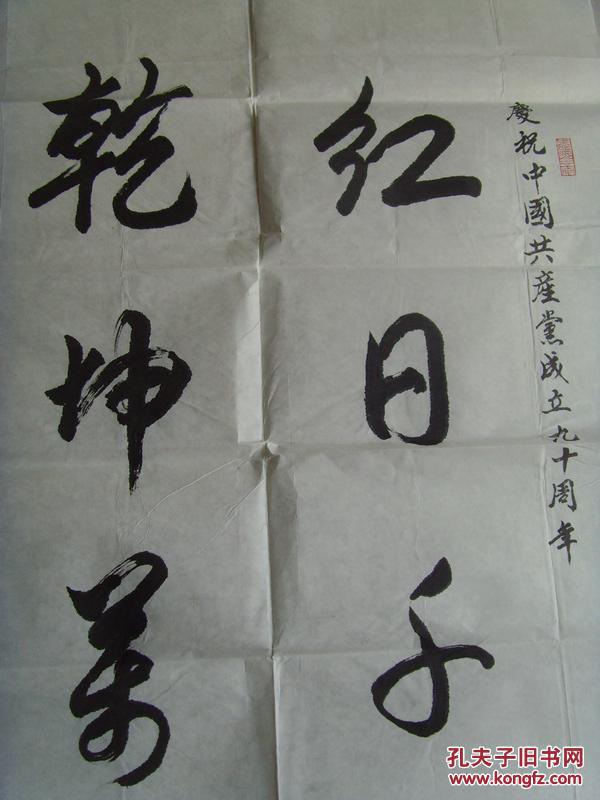 慶祝中國共産黨成立九十周年
紅日千
乾坤萬
孔夫子旧书网
www.kongfz.com